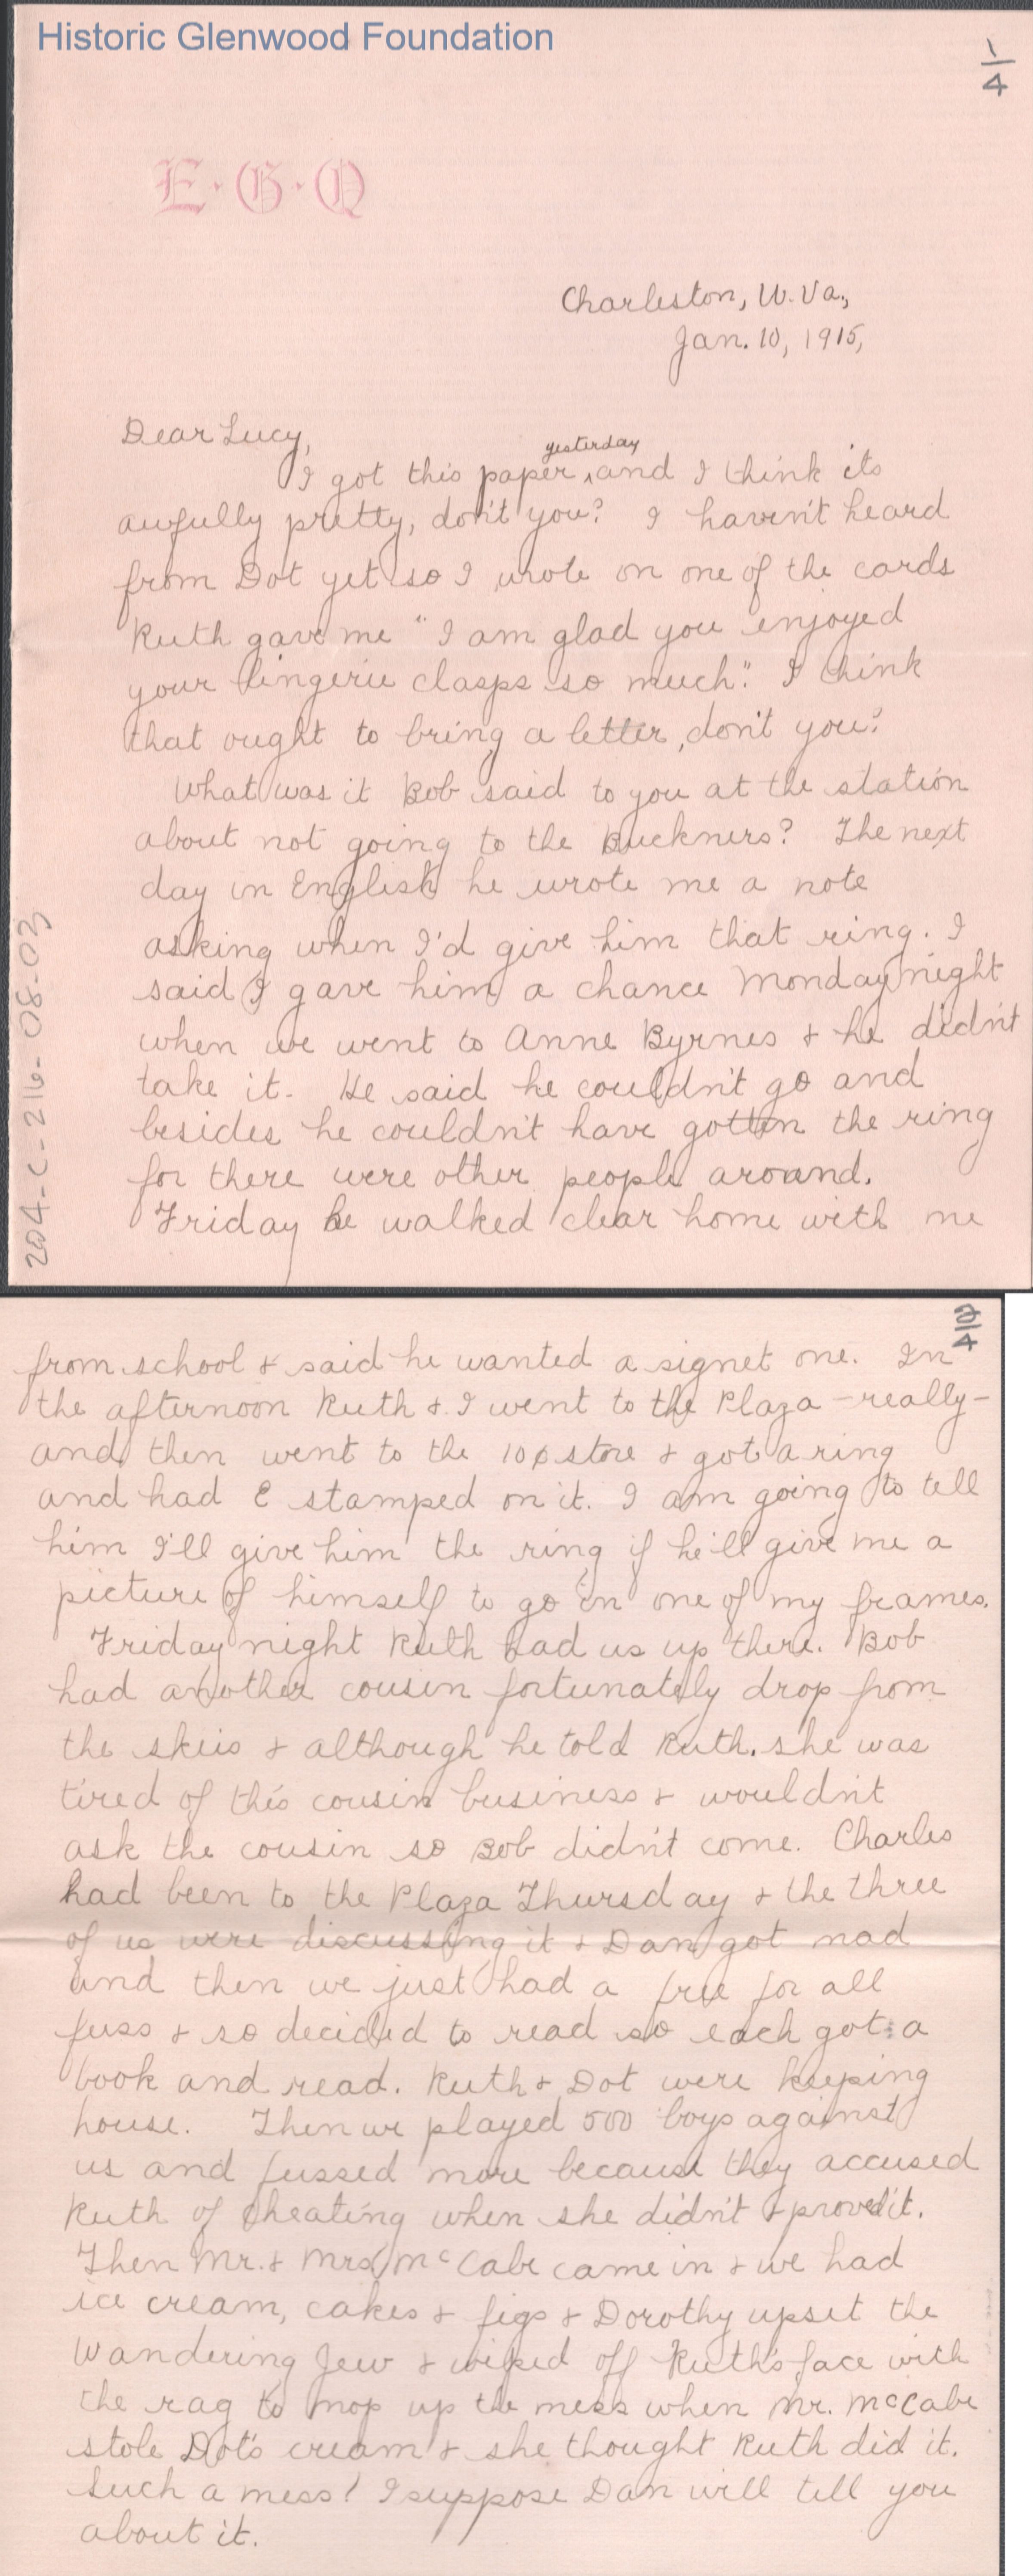 Historic Glenwood Foundation
1/4
E·G·Q
Charleston, W. Va.,
Jan. 10, 1915,
Dear Lucy,
yesterday
I got this paper, and I think its
awfully pretty, don't you? I haven't heard
from Dot yet so I wrote on one of the cards
Ruth gave me "I am glad you enjoyed
your lingerie clasps so much." I think
that ought to bring a letter, don't you?
What was it Bob said to you at the station
about not going to the Buckners? The next
day in English he wrote me a note
asking when I'd give him that ring. I
said I gave him a chance Monday night
when we went to Anne Byrnes & he didn't
take it. He said he couldn't go and
besides he couldn't have gotten the ring
for there were other people around.
Friday he walked clear home with me
204-C-216-08-03
2/4
from school & said he wanted a signet one. In
the afternoon Ruth & I went to the Plaza - really -
and then went to the 10¢ store & got a ring
and had E stamped on it. I am going to tell
him I'll give him the ring if he'll give me a
picture of himself to go in one of my frames.
Friday night Ruth had us up there. Bob
had another cousin fortunately drop from
the skies & although he told Ruth. she was
tired of this cousin business & wouldn't
ask the cousin so Bob didn't come. Charles
had been to the Plaza Thursday & the three
of us were discussing it & Dan got mad
and then we just had a free for all
fuss & so decided to read so each got a
book and read. Ruth & Dot were keeping
house. Then we played 500 boys against
us and fussed more because they accused
Ruth of cheating when she didn't & proved it.
Then Mr. & Mrs. McCabe came in & we had
ice cream, cakes & figs & Dorothy upset the
Wandering Jew & wiped off Ruth's face with
the rag to mop up the mess when Mr. McCabe
stole Dot's cream & she thought Ruth did it.
Such a mess! I suppose Dan will tell you
about it.